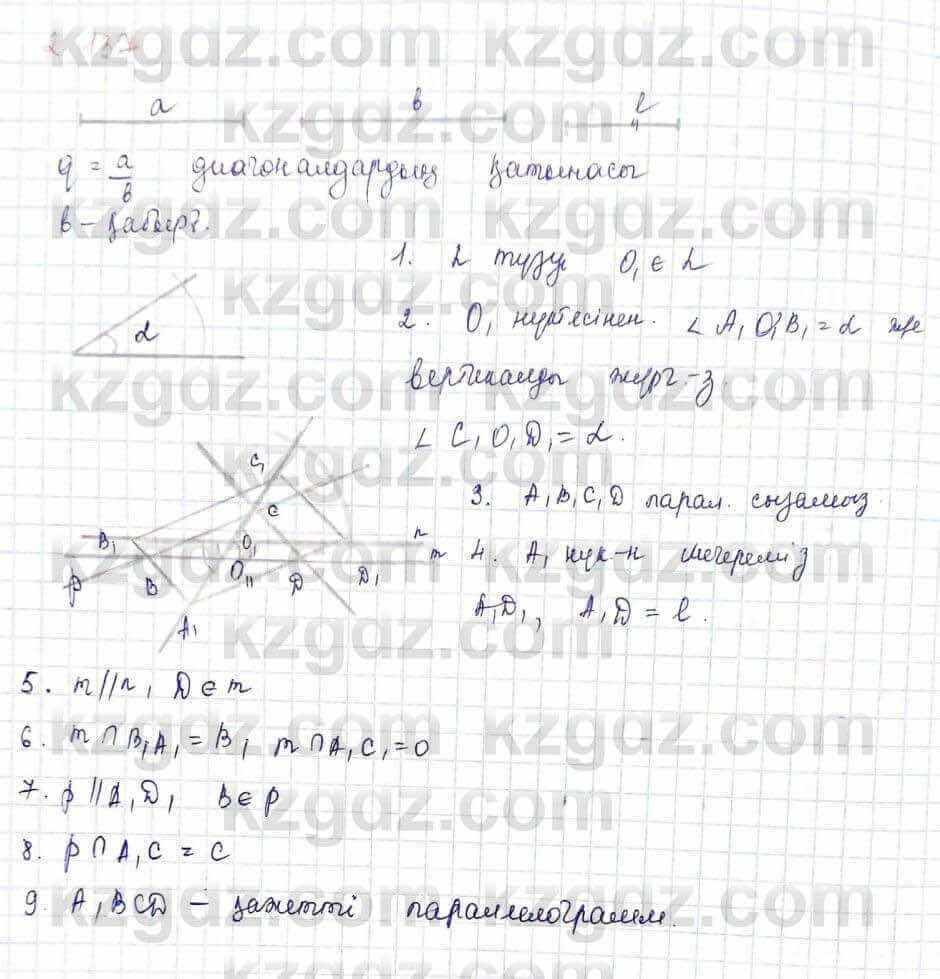 2.137
a b l
q = a/b диагоналдардың қатынасы
b – қабырғ.
α
1. L түзу O₁ ∈ L
2. O₁ нүктесінен. ∠ A₁O₁B₁ = α және
вертикалды жүрг-з
∠ C₁O₁D₁ = α.
3. A₁B₁C₁D парал. сызамыз
4. A₁ нүк-н шегереміз
A₁D₁, A₁D = l.
C₁ C n m B₁ O₁ O₁₁ D D₁ p B A₁
5. m//n, D ∈ m
6. m ∩ B₁A₁ = B, m ∩ A₁C₁ = O
7. p // A₁D₁ B ∈ p
8. p ∩ A₁C = C
9. A₁BCD – қажетті параллелограмм.
kzgaz.com